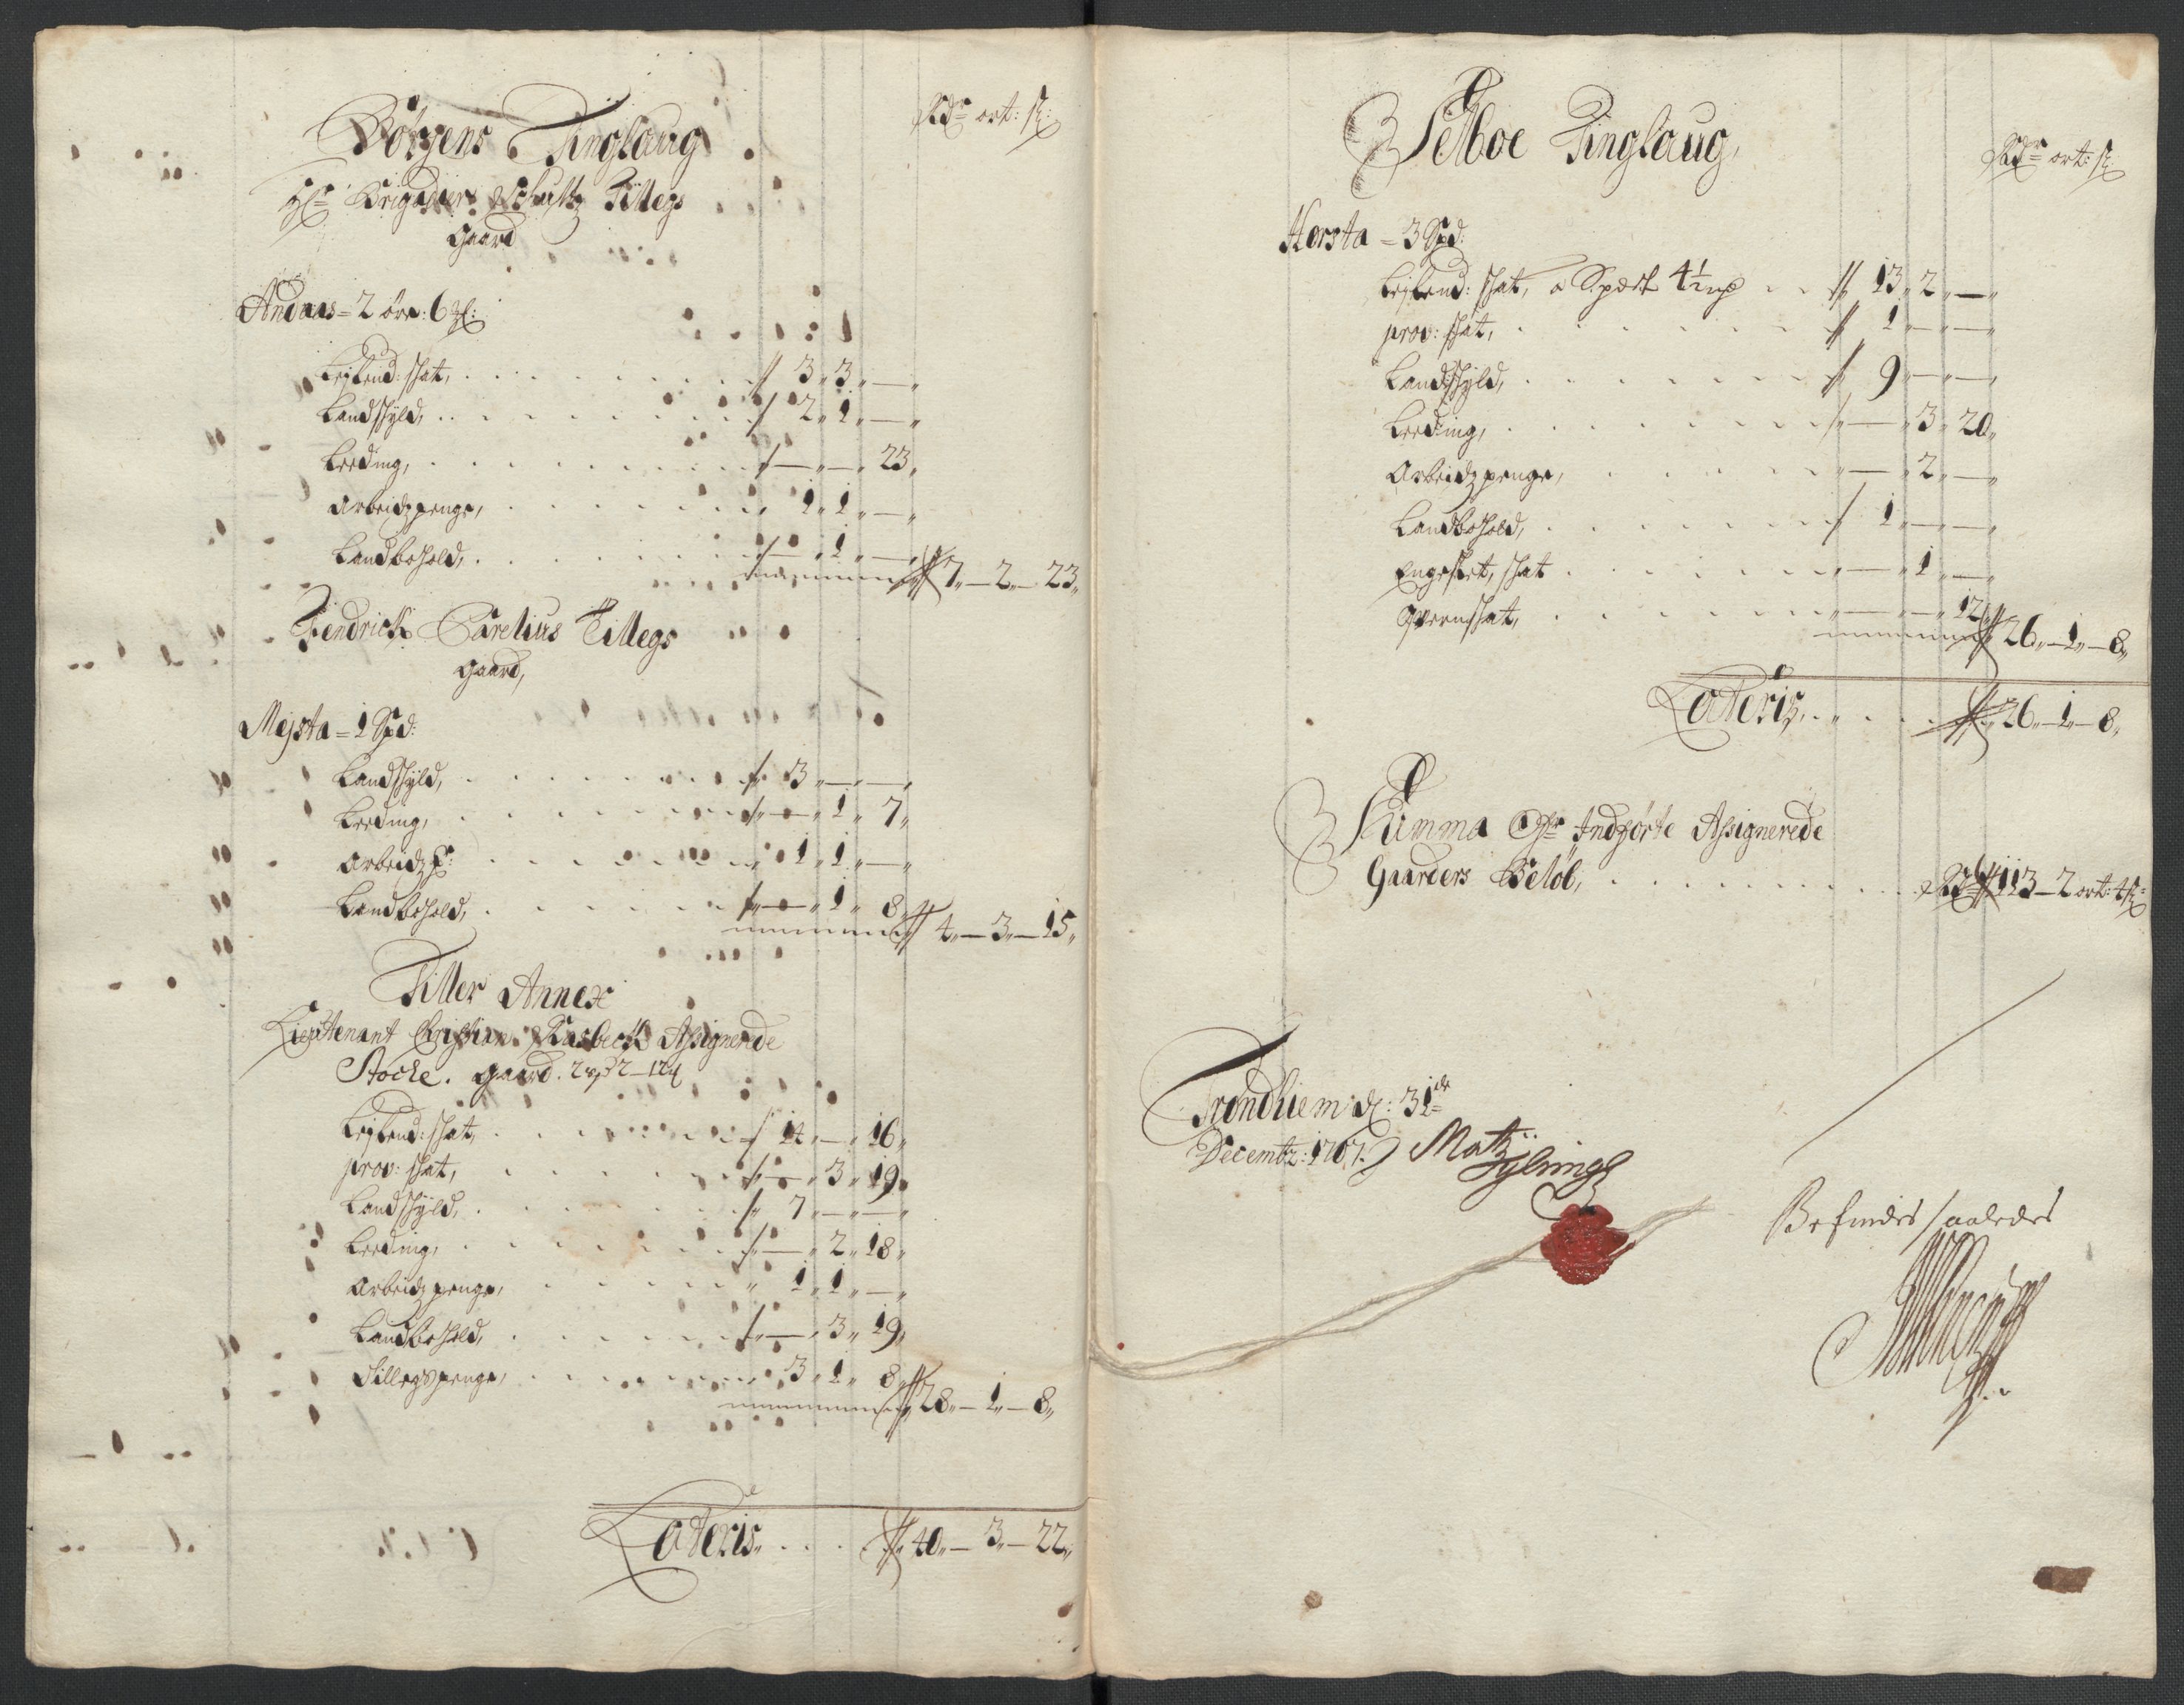 Rdr ort: s:
Børsens Tinglaug
Hr Brigadier Schultz Tillegs
Gaard
Andaas = 2 øre: 6 mkl:
Leylend: skat, 3 „ 3 „ —
Landskyld, 2 „ 1 „ —
Leeding, — „ — „ 23 „
Arbeidzpenge, 1 „ 1 „ —
Landbohold, — „ 1 „ —
7 „ — 2 „ — 23 „
Hendrich Carelius Tillegs
Gaard,
Mejsta = 1 Spd:
Landskyld, 3 „ — „ —
Leeding, — „ 1 „ 7 „
Arbeidz P: 1 „ 1 „ —
Landbohold, — „ 1 „ 8 „
4 „ — 3 „ — 15 „
Tiller Annex
Lieutenant Christian Kasbech Assignerede
Stocke. Gaard. 2 spd 2
Leylend: skat, 14 „ — „ 16 „
prov: skat, — „ 3 „ 19 „
Landskyld, 7 „ — „ —
Leeding, — „ 2 „ 18 „
Arbeidzpenge, 1 „ 1 „ —
Landbohold, — „ 3 „ 19 „
Tillegspenge, 3 „ 1 „ 8 „
28 „ — 1 „ — 8 „
Lateris, 40 „ — 3 „ — 22 „
Selboe Tinglaug,
Rdr ort: s:
Horsta = 3 Spd:
Leylend: skat, a Spdet 4½ rd 13 „ 2 „ —
prov: skat, 1 „ — „ —
Landskyld, 9 „ — „ —
Leeding, — „ 3 „ 20 „
Arbeidzpenge, — „ 2 „ —
Landbohold, 1 „ — „ —
Engeslet, skat — „ 1 „ —
Qvernskat, — „ — „ 12
26 „ — 1 „ — 8 „
Lateris, 26 „ — 1 „ — 8 „
Summa Ofr Indførte Assignerede
Gaarders Beløb, Rdr 113 — 2 ort: 4 s:
Trondhiem d: 31de
Decembr: 1707. Matz
Befindes saaledes